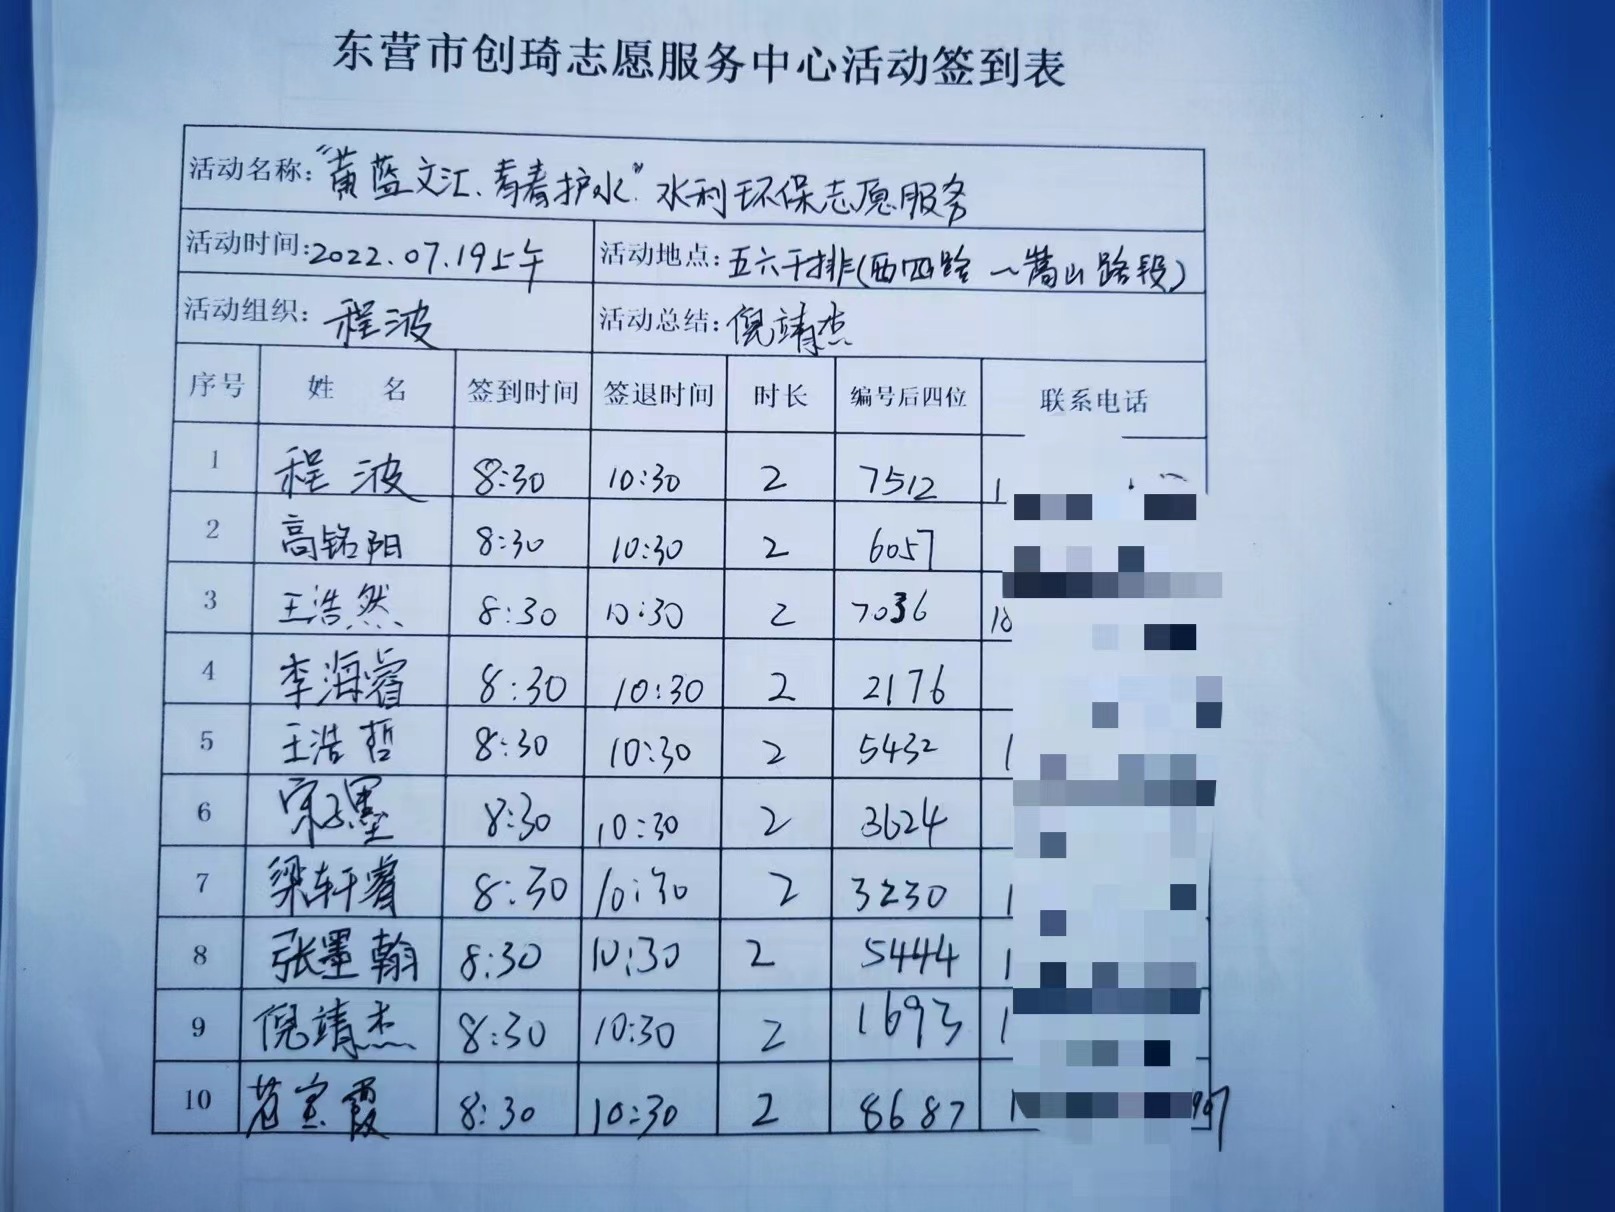 东营市创琦志愿服务中心活动签到表
活动名称：“黄蓝文汇、青春护水”水利环保志愿服务
活动时间：2022.07.19上午 活动地点：五六干排(西四路～嵩山路段)
活动组织：程波 活动总结：倪靖杰
序号 姓 名 签到时间 签退时间 时长 编号后四位 联系电话
1 程波 8:30 10:30 2 7512 1
2 高铭阳 8:30 10:30 2 6057
3 王浩然 8:30 10:30 2 7036
4 李海睿 8:30 10:30 2 2176
5 王浩哲 8:30 10:30 2 5432 1
6 8:30 10:30 2 3624
7 梁轩睿 8:30 10:30 2 3230 1
8 张墨翰 8:30 10:30 2 5444 1
9 倪靖杰 8:30 10:30 2 1693 1
10 8:30 10:30 2 8687 1